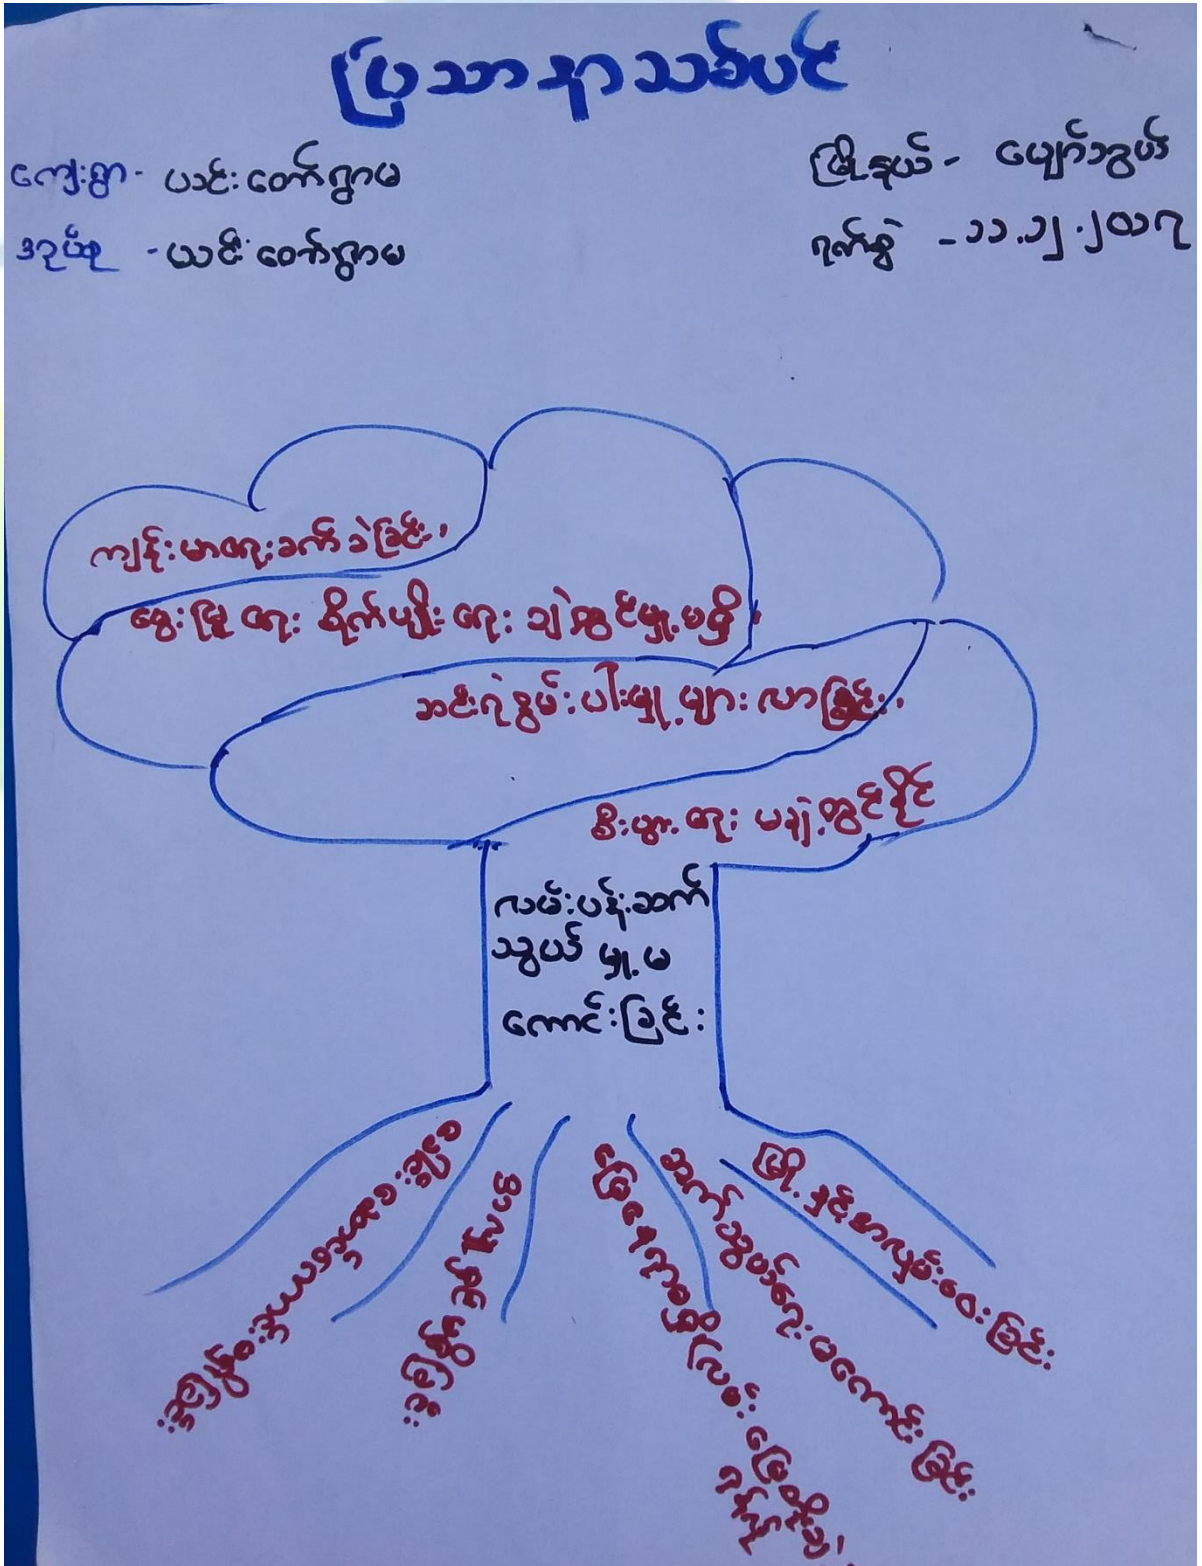 ပြဿနာသစ်ပင်
ကျေးရွာ - ယင်းတော်ရွာမ
အုပ်စု - ယင်းတော်ရွာမ
မြို့နယ် - ပျော်ဘွယ်
ရက်စွဲ - ၁၁.၁၂.၂၀၁၇
ကျန်းမာရေးခက်ခဲခြင်း၊
မွေးမြူရေး စိုက်ပျိုးရေး ချဲ့ထွင်မှု့မရှိ၊
ဆင်းရဲနွမ်းပါးမှု့များလာခြင်း၊
စီးပွားရေး မချဲ့ထွင်နိုင်
လမ်းပန်းဆက်
သွယ်မှု့မ
ကောင်းခြင်း
မြို့နှင့်အလှမ်းဝေးခြင်း
ဆက်သွယ်ရေးမကောင်းခြင်း